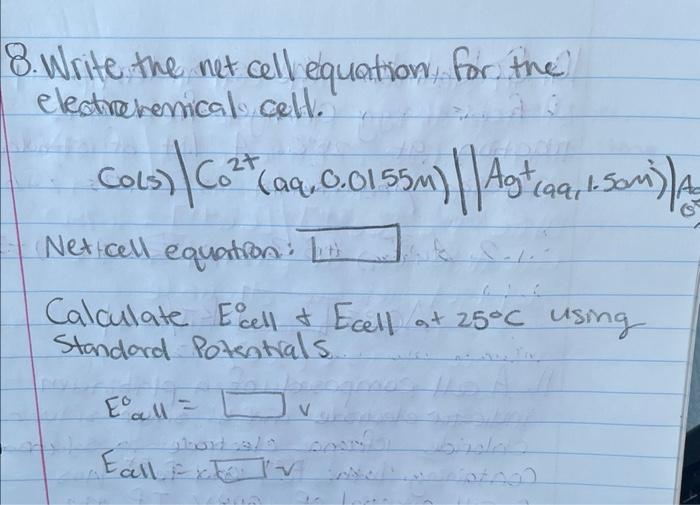 8. Write the net cell equation for the
electrochemical cell.
Co(s)|Co²⁺(aq, 0.0155M)||Ag⁺(aq, 1.50M)|A
Net cell equation:
Calculate E°cell & Ecell at 25°C using
Standard Potentials
E°cell = V
Ecell = V